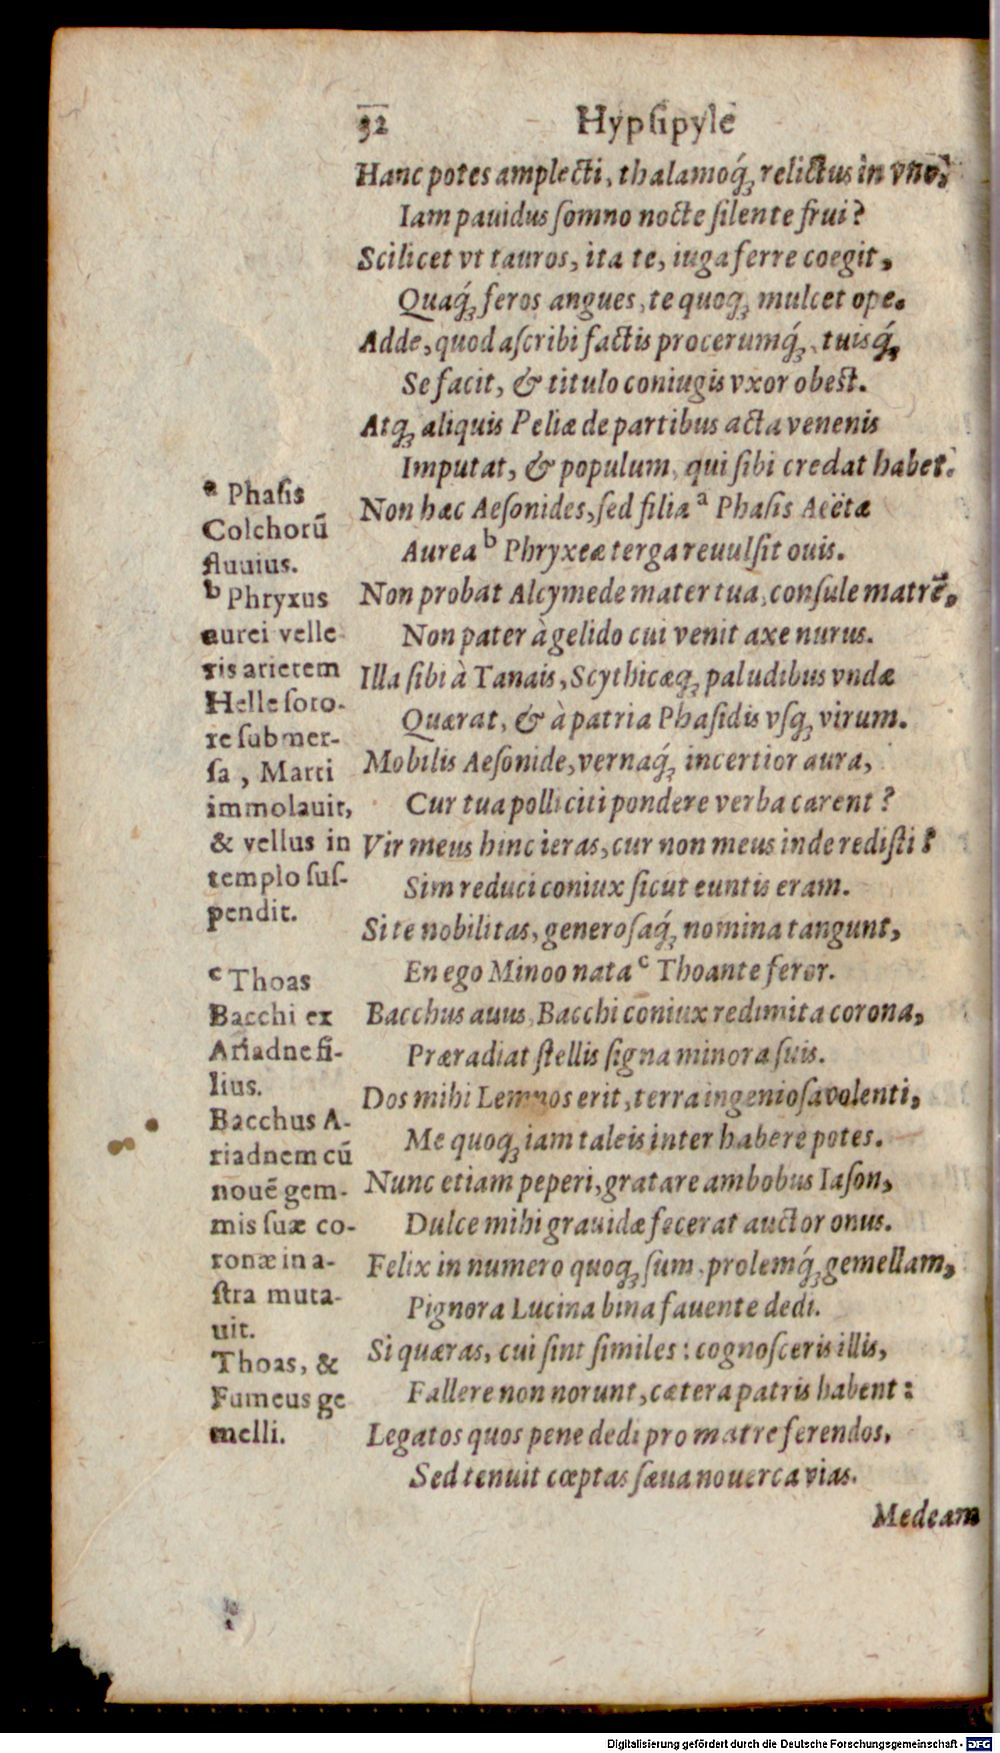 32 Hypſipyle
Hanc potes amplecti, thalamoq́ꝫ relictus in vno,
Iam pauidus ſomno nocte ſilente frui?
Scilicet vt tauros, ita te, iuga ferre coegit,
Quaq́ꝫ feros angues, te quoqꝫ mulcet ope.
Adde, quod aſcribi factis procerumq́ꝫ, tuisq́ꝫ,
Se facit, & titulo coniugis vxor obest.
Atqꝫ aliquis Peliæ de partibus acta venenis
Imputat, & populum, qui ſibi credat habet.
Non hæc Aeſonides, ſed filia ᵃ Phaſis Aeëtæ
Aurea ᵇ Phryxeæ terga reuulſit ouis.
Non probat Alcymede mater tua, conſule matrē,
Non pater à gelido cui venit axe nurus.
Illa ſibi à Tanais, Scythicæqꝫ paludibus vndæ
Quærat, & à patria Phaſidis vſqꝫ virum.
Mobilis Aeſonide, vernaq́ꝫ incertior aura,
Cur tua polliciti pondere verba carent?
Vir meus hinc ieras, cur non meus inde rediſti?
Sim reduci coniux ſicut euntis eram.
Si te nobilitas, generoſaq́ꝫ nomina tangunt,
En ego Minoo nata ᶜ Thoante feror.
Bacchus auus, Bacchi coniux redimita corona,
Præradiat ſtellis ſigna minora ſuis.
Dos mihi Lemnos erit, terra ingenioſa volenti,
Me quoqꝫ iam taleis inter habere potes.
Nunc etiam peperi, gratare ambobus Iaſon,
Dulce mihi grauidæ fecerat auctor onus.
Felix in numero quoqꝫ ſum, prolemq́ꝫ gemellam,
Pignora Lucina bina fauente dedi.
Si quæras, cui ſint ſimiles: cognoſceris illis,
Fallere non norunt, cætera patris habent:
Legatos quos pene dedi pro matre ferendos,
Sed tenuit cœptas ſæua nouerca vias.
Medeam
ᵃ Phaſis
Colchorū
fluuius.
ᵇ Phryxus
aurei velle
ris arietem
Helle ſoro-
re ſubmer-
ſa, Marti
immolauit,
& vellus in
templo ſuſ-
pendit.
ᶜ Thoas
Bacchi ex
Ariadne fi-
lius.
Bacchus A-
riadnem cū
nouē gem-
mis ſuæ co-
ronæ in a-
ſtra muta-
uit.
Thoas, &
Fumeus ge
melli.
Digitalisierung gefördert durch die Deutsche Forschungsgemeinschaft - DFG